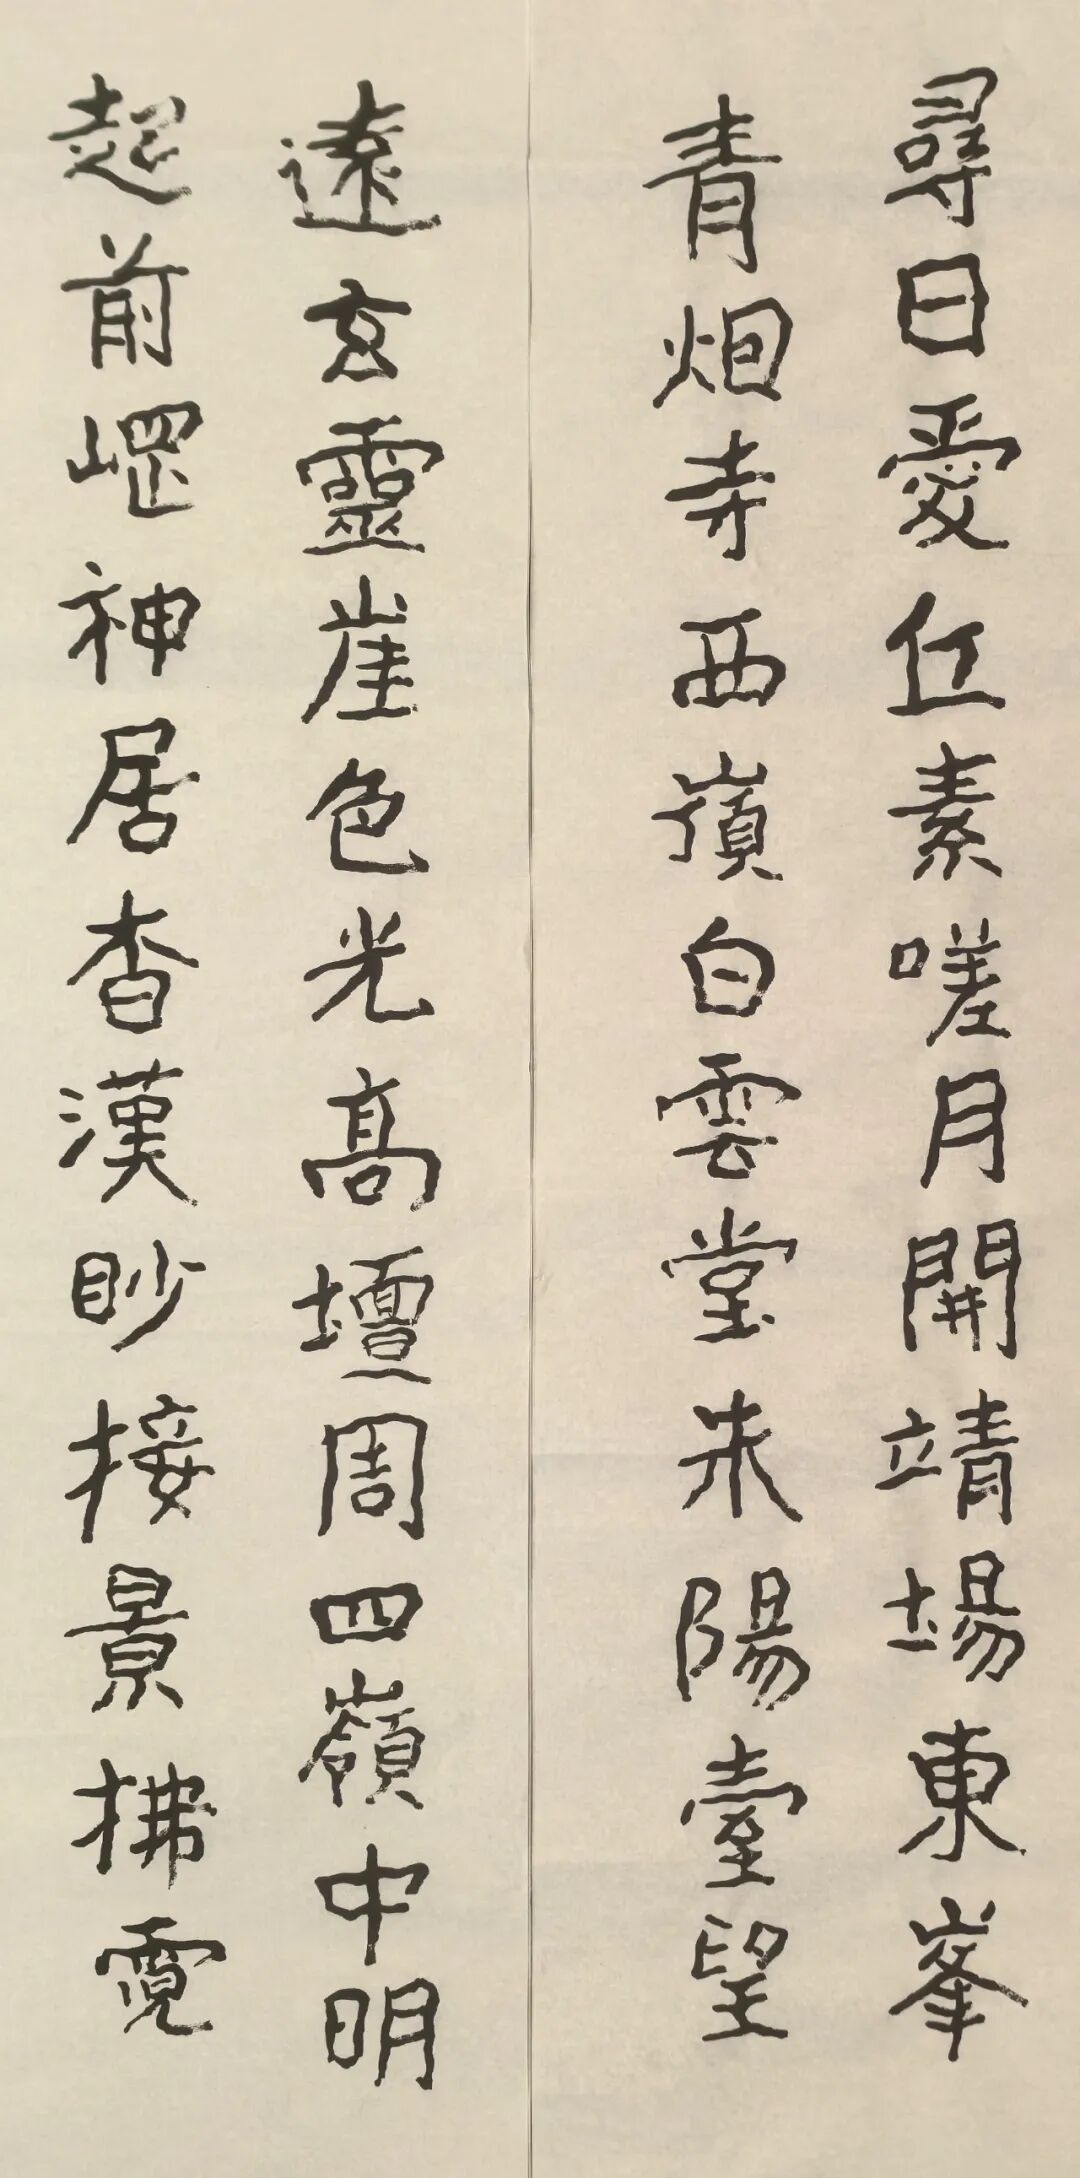 尋日愛丘素嗟月開靖場東峯
青烟寺西嶺白雲堂朱陽臺望
遠玄靈崖色光高壇周四嶺中明
起前崗神居杳漢眇接景拂霓